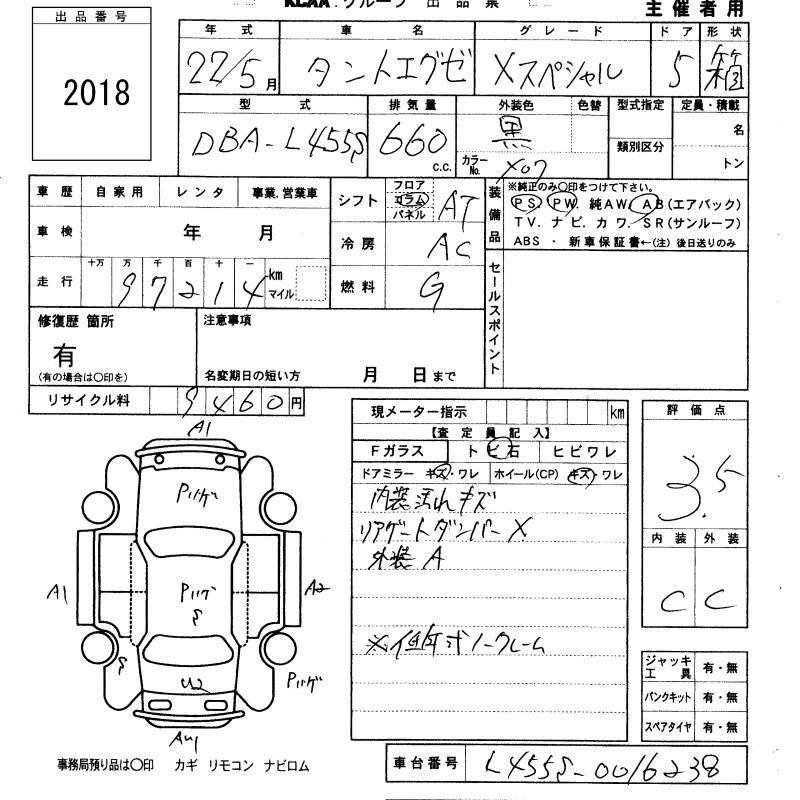 KCAA.グループ 出品票
主催者用
出品番号
2018
年式 車名 グレード ドア 形状
22/5月 タントエグゼ Xスペシャル 5 箱
型式 排気量 外装色 色替 型式指定 定員・積載
DBA-L455S 660 c.c. 黒 カラーNo. X07 類別区分 名 トン
車歴 自家用 レンタ 事業.営業車
車検 年 月
走行 十万 万 千 百 十 一
97214 km マイル
シフト フロア コラム パネル AT
冷房 AC
燃料 G
装備品 ※純正のみ〇印をつけて下さい。
PS PW 純AW. AB(エアバック)
TV. ナビ. カワ. SR(サンルーフ)
ABS ・ 新車保証書←(注) 後日送りのみ
セールスポイント
修復歴 箇所
有
(有の場合は〇印を)
注意事項
名変期日の短い方 月 日まで
リサイクル料 9460円
現メーター指示 km
【査定員記入】
Fガラス トビ石 ヒビワレ
ドアミラー キズ・ワレ ホイール(CP) キズ・ワレ
内装汚れキズ
リアゲートダンパーX
外装A
※低年式ノークレーム
評価点
3.5
内装 外装
C C
ジャッキ工具 有・無
パンクキット 有・無
スペアタイヤ 有・無
A1
Pハゲ
A1
Pハゲ
S
A2
S
Pハゲ
U2
AU1
事務局預り品は〇印 カギ リモコン ナビロム
車台番号 L455S-0016238